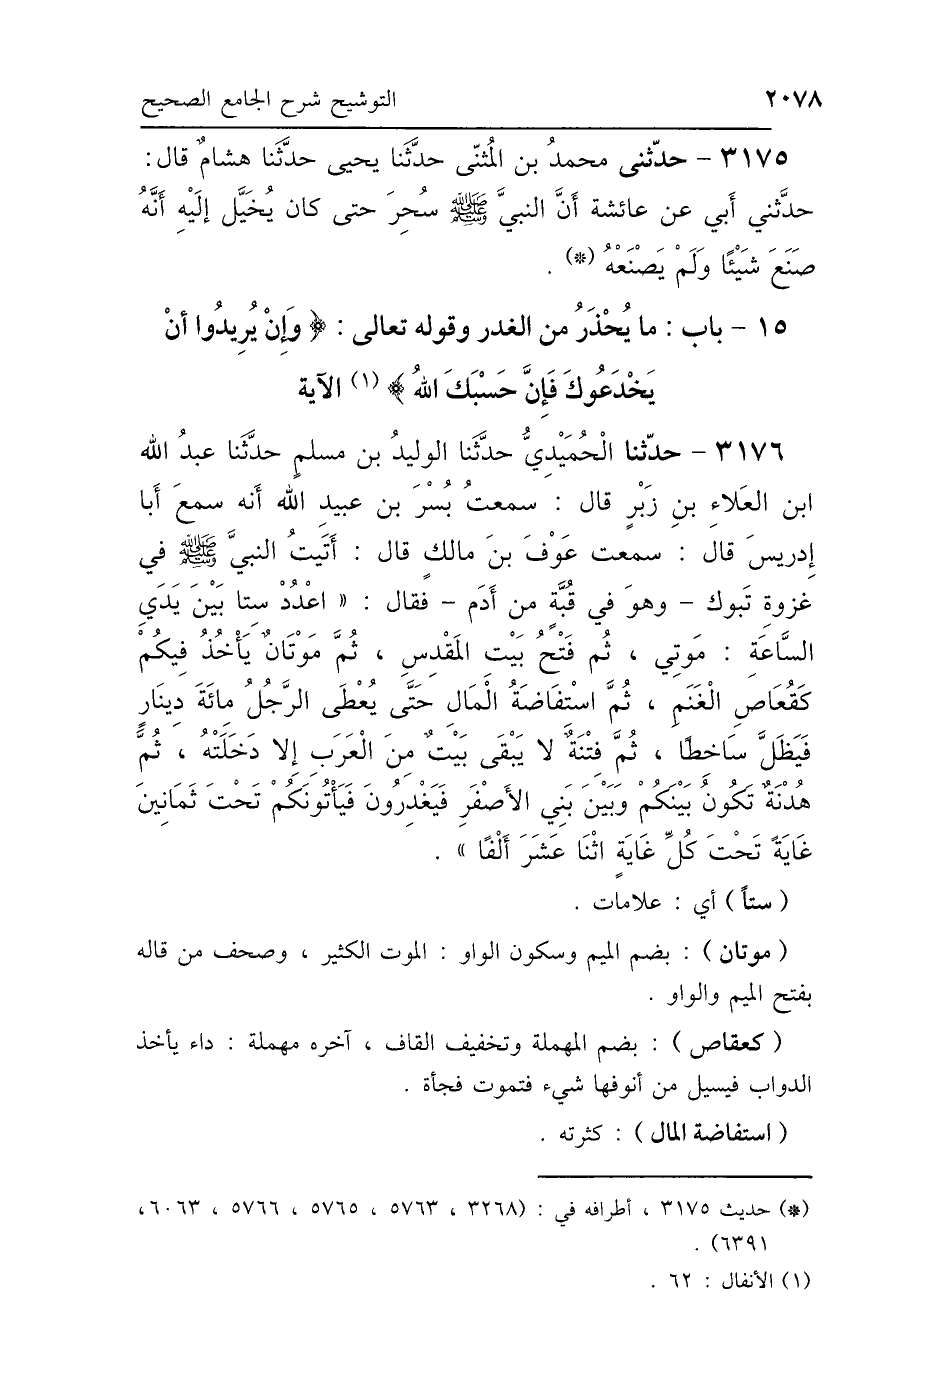 ٢٠٧٨ التوشيح شرح الجامع الصحيح
٣١٧٥ – حدّثنى محمدُ بن المُثنّى حدَّثَنا يحيى حدَّثَنا هشامٌ قال :
حدَّثني أَبي عن عائشة أَنَّ النبيَّ ﷺ سُحِرَ حتى كان يُخَيَّل إِلَيْهِ أَنَّهُ
صَنَعَ شَيْئًا وَلَمْ يَصْنَعْهُ (*) .
١٥ – باب : ما يُحْذَرُ من الغدر وقوله تعالى : ﴿ وَإِنْ يُرِيدُوا أنْ
يَخْدَعُوكَ فَإِنَّ حَسْبَكَ اللهُ ﴾ (١) الآية
٣١٧٦ – حدّثنا الْحُمَيْدِيُّ حدَّثَنا الوليدُ بن مسلمٍ حدَّثَنا عبدُ الله
ابن العَلاءِ بنِ زَبْرٍ قال : سمعتُ بُسْرَ بن عبيدِ الله أَنه سمعَ أَبا
إِدريسَ قال : سمعت عَوْفَ بنَ مالكٍ قال : أَتَيتُ النبيَّ ﷺ في
غزوةِ تَبوك – وهوَ في قُبَّةٍ من أَدَم – فقال : « اعْدُدْ ستا بَيْنَ يَدَيِ
السَّاعَةِ : مَوتي ، ثُم فَتْحُ بَيْتِ المَقْدِسِ ، ثُمَّ مَوْتَانٌ يَأْخُذُ فِيكُمْ
كَقُعَاصِ الْغَنَمِ ، ثُمَّ اسْتِفَاضَةُ الْمَالِ حَتَّى يُعْطَى الرَّجُلُ مائَةَ دِينَارٍ
فَيَظَلَّ سَاخِطًا ، ثُمَّ فِتْنَةٌ لا يَبْقَى بَيْتٌ مِنَ الْعَرَبِ إِلا دَخَلَتْهُ ، ثُمَّ
هُدْنَةٌ تَكُونُ بَيْنَكُمْ وَبَيْنَ بَنِي الأَصْفَرِ فَيَغْدِرُونَ فَيَأْتُونَكُمْ تَحْتَ ثَمَانِينَ
غَايَةً تَحْتَ كُلِّ غَايَةٍ اثْنَا عَشَرَ أَلْفًا » .
( ستاً ) أي : علامات .
( موتان ) : بضم الميم وسكون الواو : الموت الكثير ، وصحف من قاله
بفتح الميم والواو .
( كعقاص ) : بضم المهملة وتخفيف القاف ، آخره مهملة : داء يأخذ
الدواب فيسيل من أنوفها شيء فتموت فجأة .
( استفاضة المال ) : كثرته .
(*) حديث ٣١٧٥ ، أطرافه في : (٣٢٦٨ ، ٥٧٦٣ ، ٥٧٦٥ ، ٥٧٦٦ ، ٦٠٦٣ ،
٦٣٩١) .
(١) الأنفال : ٦٢ .